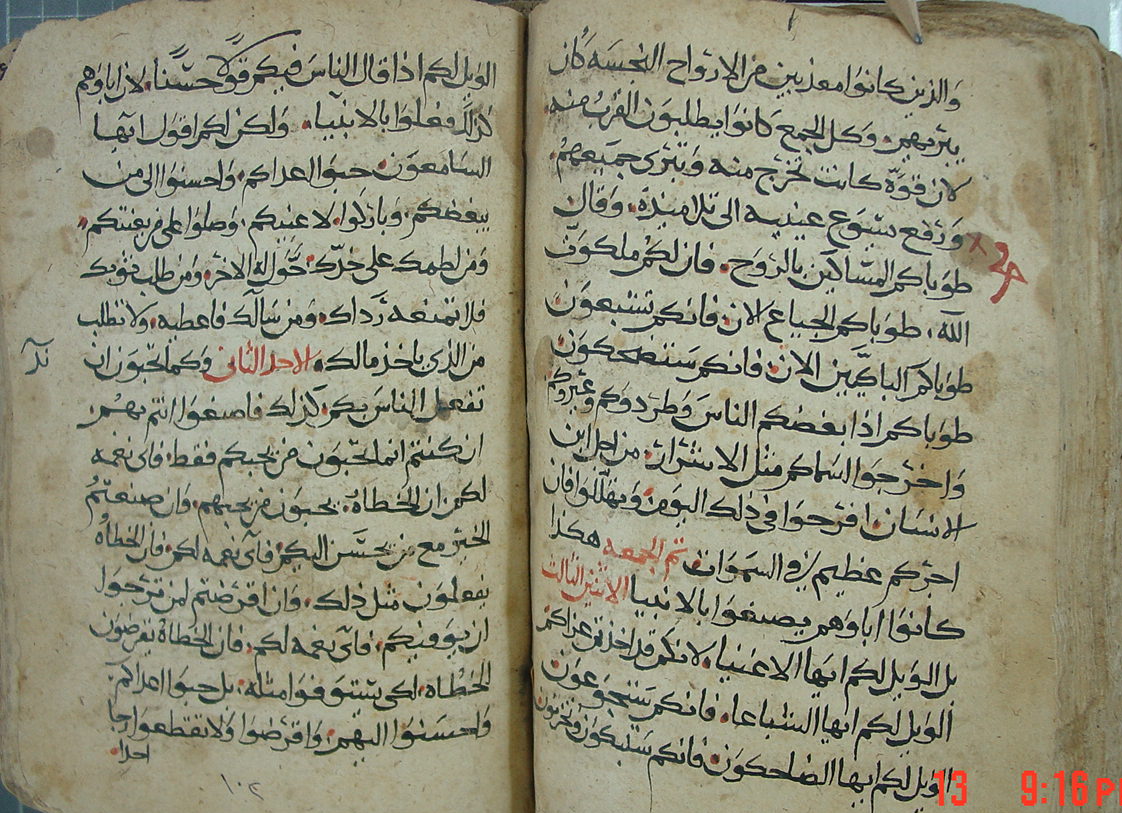 والذين كانوا معذبين من الارواح النجسه كان
يبريهم. وكل الجمع كانوا يطلبون القرب منه.
لان قوة كانت تخرج منه وتبرى جميعهم.
ورفع يسوع عينيه الى تلاميذه. وقال
طوباكم المساكين بالروح. فان لكم ملكوت
الله. طوباكم الجياع الان. فانكم تشبعون
طوباكم الباكيين الان. فانكم ستضحكون
طوباكم اذا بغضكم الناس وطردوكم وعيروكم
واخرجوا اسماكم مثل الاشرار. من اجل ابن
الانسان. افرحوا في ذلك اليوم. وتهللوا فان
اجركم عظيم في السموات. تم الجمعه هكذا
كانوا اباوهم يصنعوا بالانبيا الاثنين الثالث
بل الويل لكم ايها الاغنيا. لانكم قد اخذتم عزاكم
الويل لكم ايها الشباعا. فانكم ستجوعون
الويل لكم ايها الضاحكون. فانكم ستبكون وتحزنون
الويل لكم اذا قال الناس فيكم قولا حسنا. لان اباوهم
كذلك فعلوا بالانبيا. ولكن لكم اقول ايها
السامعون. حبوا اعداكم. واحسنوا الى من
يبغضكم. وباركوا لاعنيكم. وصلوا على من يعنتكم.
ومن لطمك على خدك. حول له الاخر. ومن طلب ثوبك
فلا تمنعه رداك. ومن سالك فاعطيه. ولا تطلب
من الذي ياخذ مالك. الاحد الثاني وكما تحبون ان
تفعل الناس بكم. كذلك فاصنعوا انتم بهم.
ان كنتم انما تحبون من يحبكم فقط. فاى نعمه
لكم. ان الخطاه. يحبون من يحبهم. وان صنعتم
الخير مع من يحسن اليكم. فاى نعمه لكم. فان الخطاه
يفعلون مثل ذلك. وان اقرضتم لمن ترجوا
ان يوفيكم. فاى نعمه لكم. فان الخطاه يقرضون
الخطاه. لكى يستوفوا مثله. بل حبوا اعداكم.
واحسنوا اليهم. واقرضوا ولا تقطعوا رجا
احد.
١٠٢
13 9:16 P